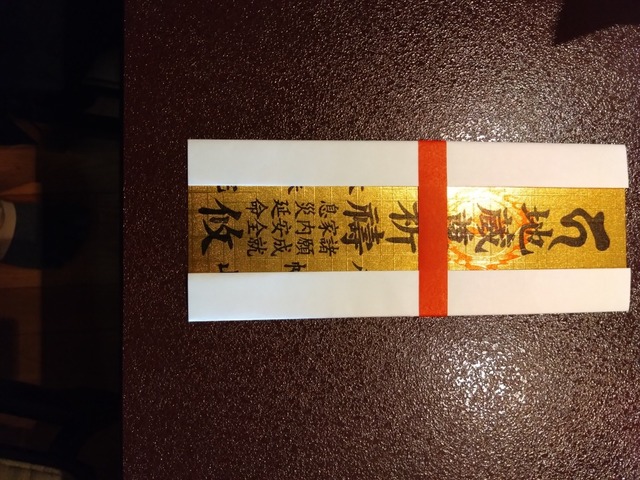 地蔵護
祈禱
息災延命
家内安全
諸願成就